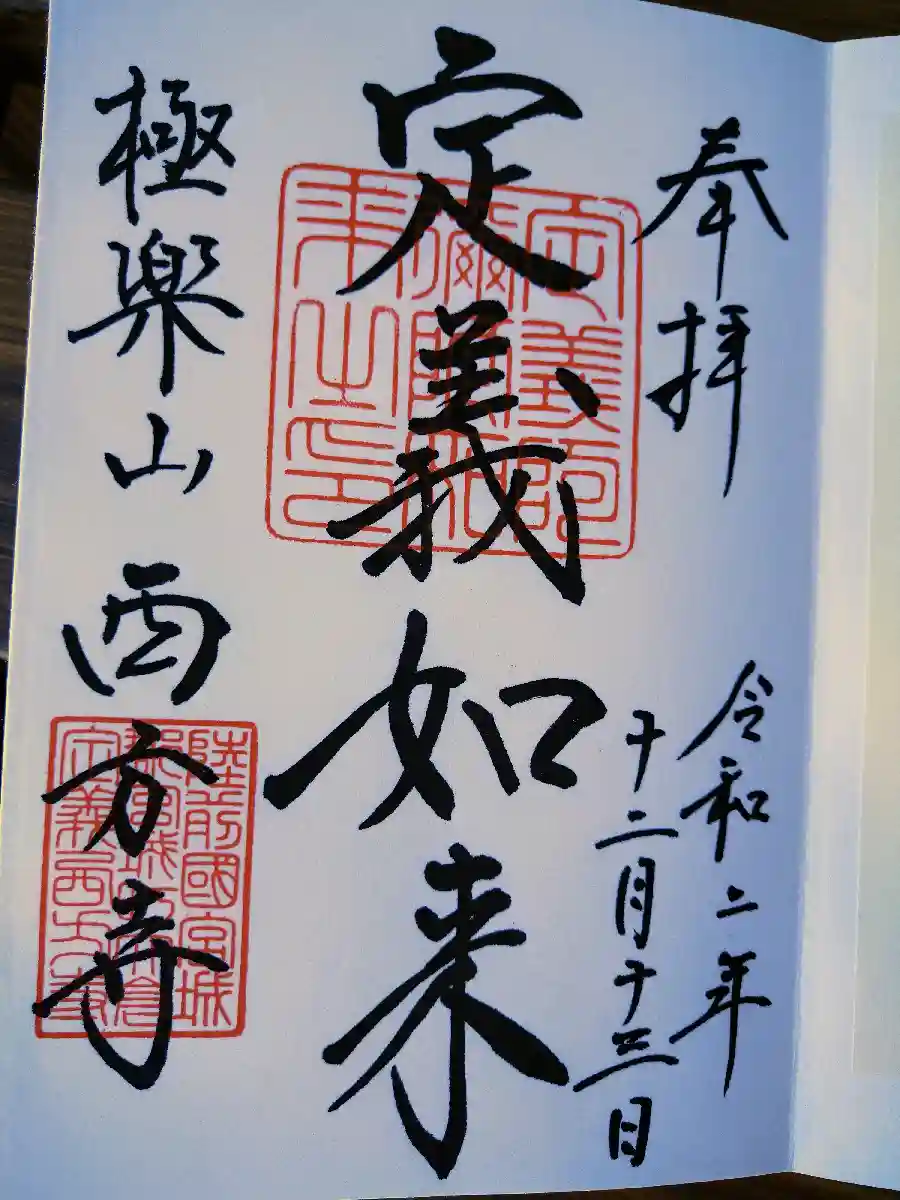 奉拝
令和二年
十二月十三日
定義如来
極樂山 西方寺
定義阿
彌陀如
来之印
陸前國宮城
定義西方寺